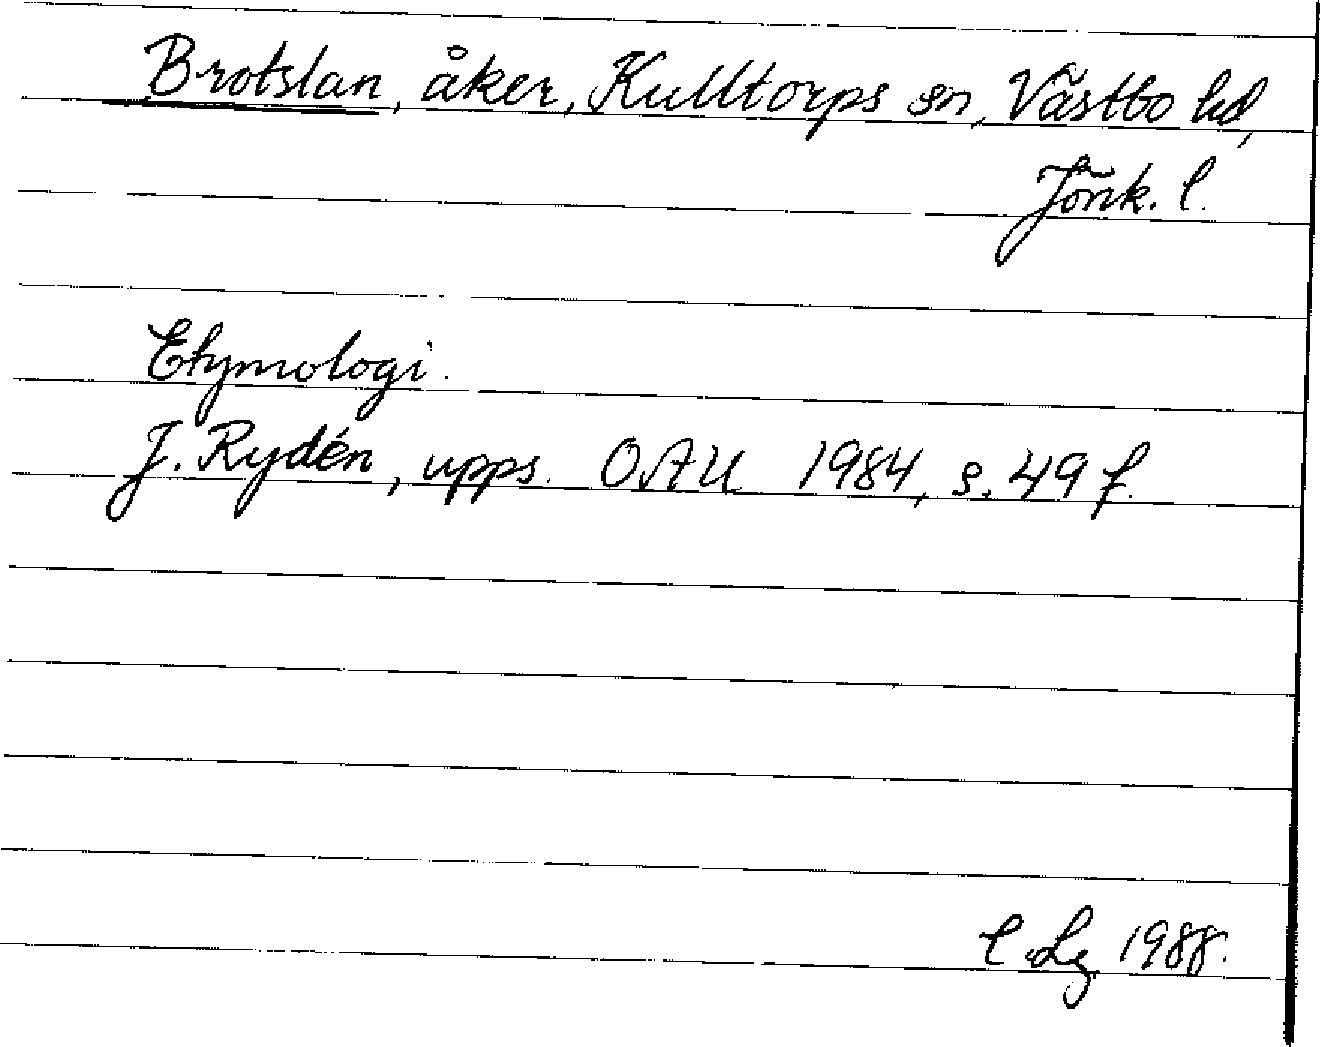 Brotslan, åker, Kulltorps sn, Västbo hd,
Jönk. l.
Etymologi.
J. Rydén, upps. OAU 1984, s. 49 f.
C. Lg 1988.